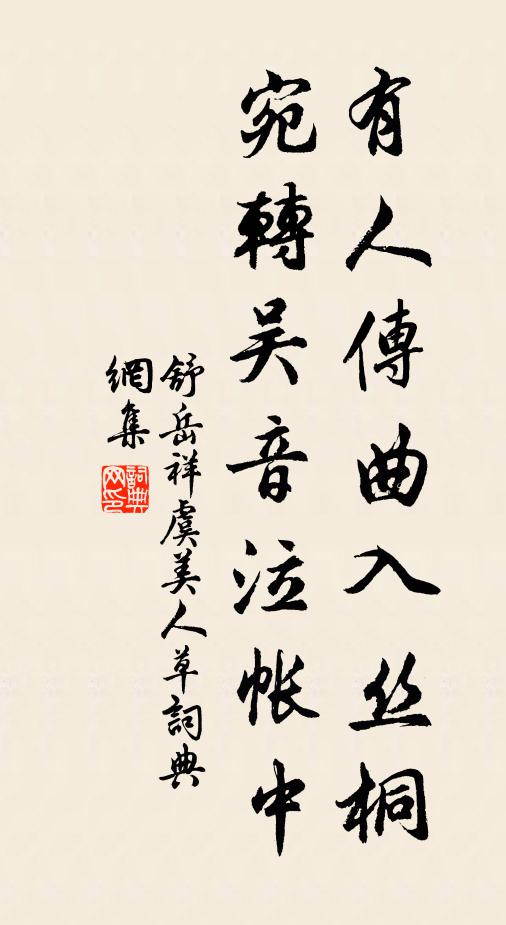 有人傳曲入丝桐
宛轉吴音泣帳中
舒岳祥虞美人草詞典
網集
詞典网印